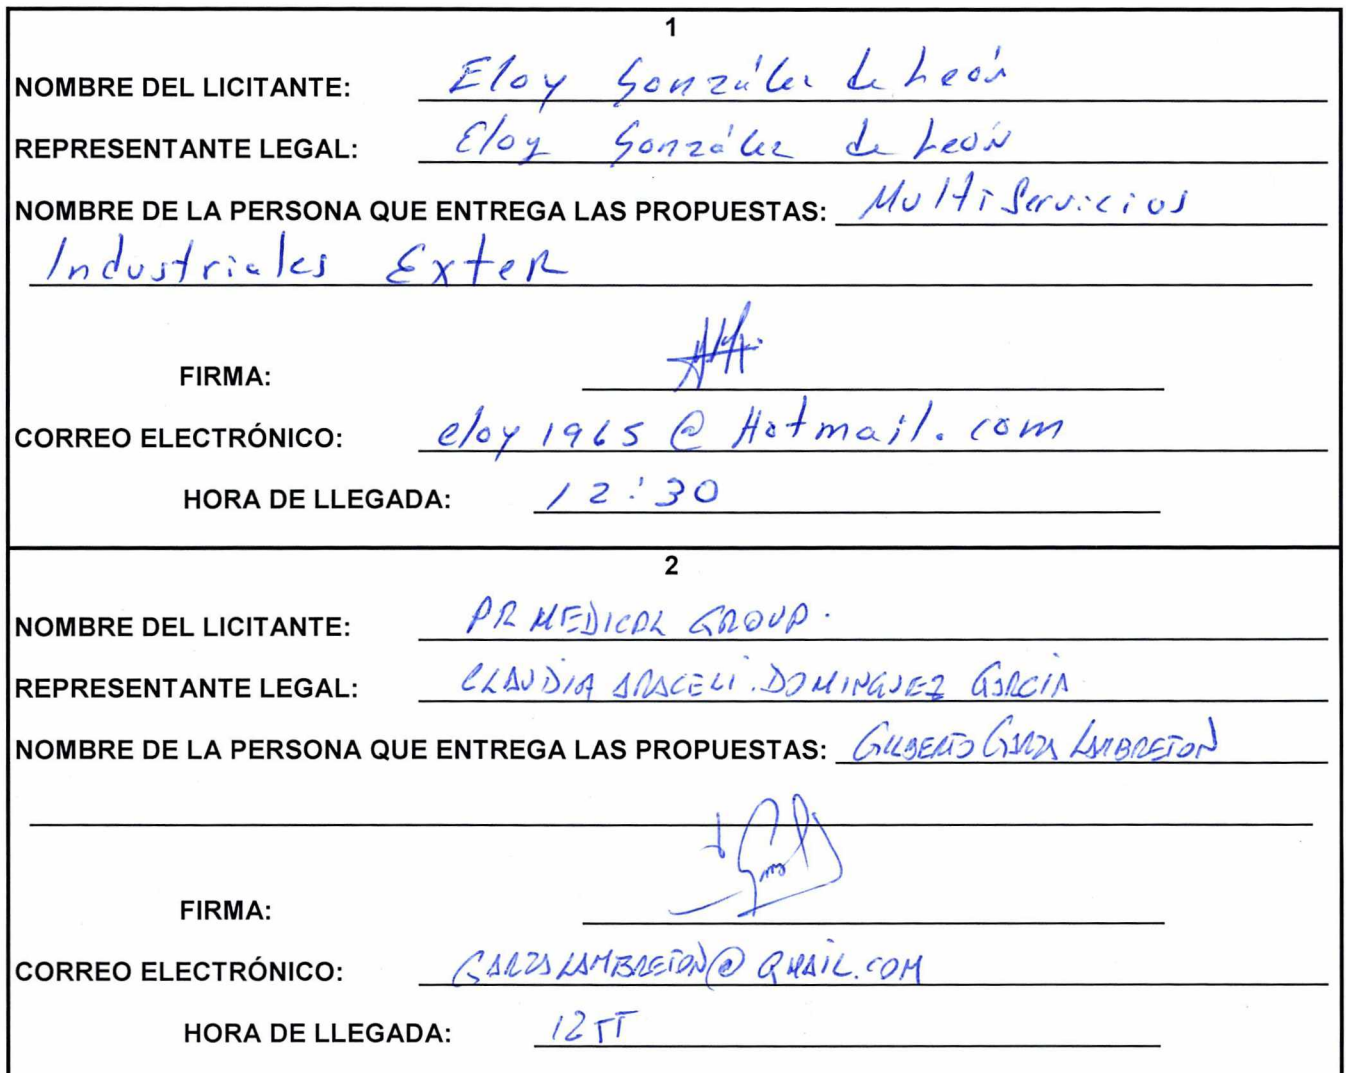 1
NOMBRE DEL LICITANTE: Eloy González de León
REPRESENTANTE LEGAL: Eloy González de León
NOMBRE DE LA PERSONA QUE ENTREGA LAS PROPUESTAS: MultiServicios
Industriales ExteR
FIRMA:
CORREO ELECTRÓNICO: eloy1965@Hotmail.com
HORA DE LLEGADA: 12:30
2
NOMBRE DEL LICITANTE: PR MEDICAL GROUP.
REPRESENTANTE LEGAL: CLAUDIA ARACELI DOMINGUEZ GARCIA
NOMBRE DE LA PERSONA QUE ENTREGA LAS PROPUESTAS: GILBERTO GARZA LAMBRETON
FIRMA:
CORREO ELECTRÓNICO: GARZALAMBRETON@GMAIL.COM
HORA DE LLEGADA: